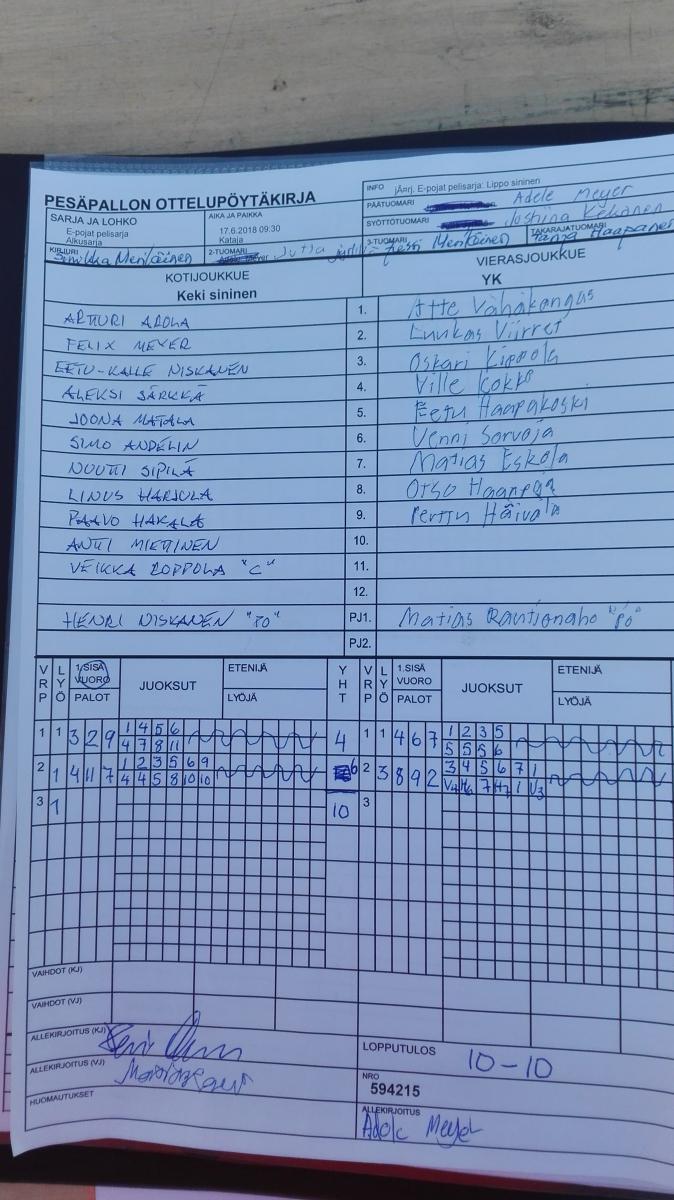 PESÄPALLON OTTELUPÖYTÄKIRJA
INFO jÄnrj. E-pojat pelisarja: Lippo sininen
SARJA JA LOHKO
E-pojat pelisarja
Alkusarja
AIKA JA PAIKKA
17.6.2018 09:30
Kataja
PÄÄTUOMARI Adele Meyer
SYÖTTÖTUOMARI
KIRJURI Menläinen
2-TUOMARI Jutta
3-TUOMARI
TAKARAJATUOMARI
KOTIJOUKKUE
Keki sininen
VIERASJOUKKUE
YK
ARTTURI AROLA 1. Atte Vähäkangas
FELIX MEYER 2. Luukas Viirret
EETU-KALLE NISKANEN 3. Oskari Kippola
ALEKSI SÄRKKÄ 4. Ville Kokko
JOONA MATALA 5. Eetu Haapakoski
SIMO ANDELIN 6. Venni Sorvoja
NUUTTI SIPILÄ 7. Matias Eskola
LINUS HARJULA 8. Otso
PAAVO HAKALA 9. Perttu
ANTTI MIETTINEN 10.
VEIKKA ROPPOLA "C" 11.
12.
HENRI NISKANEN "PO" PJ1. Matias Rautionaho "PO"
PJ2.
VRP LYÖ 1.SISÄ VUORO PALOT JUOKSUT ETENIJÄ LYÖJÄ YHT VRP LYÖ 1.SISÄ VUORO PALOT JUOKSUT ETENIJÄ LYÖJÄ
1 1 3 2 9 1 4 5 6 4 1 1 4 6 7 1 2 3 5
4 7 8 11 5 5 5 6
2 1 4 11 7 1 2 3 5 6 9 6 2 3 8 9 2 3 4 5 6 7 1
4 4 5 8 10 10 V4 H6 7 H7 1 V3
3 1 10 3
VAIHDOT (KJ)
VAIHDOT (VJ)
ALLEKIRJOITUS (KJ)
ALLEKIRJOITUS (VJ)
HUOMAUTUKSET
LOPPUTULOS 10-10
NRO
594215
ALLEKIRJOITUS
Adele Meyer